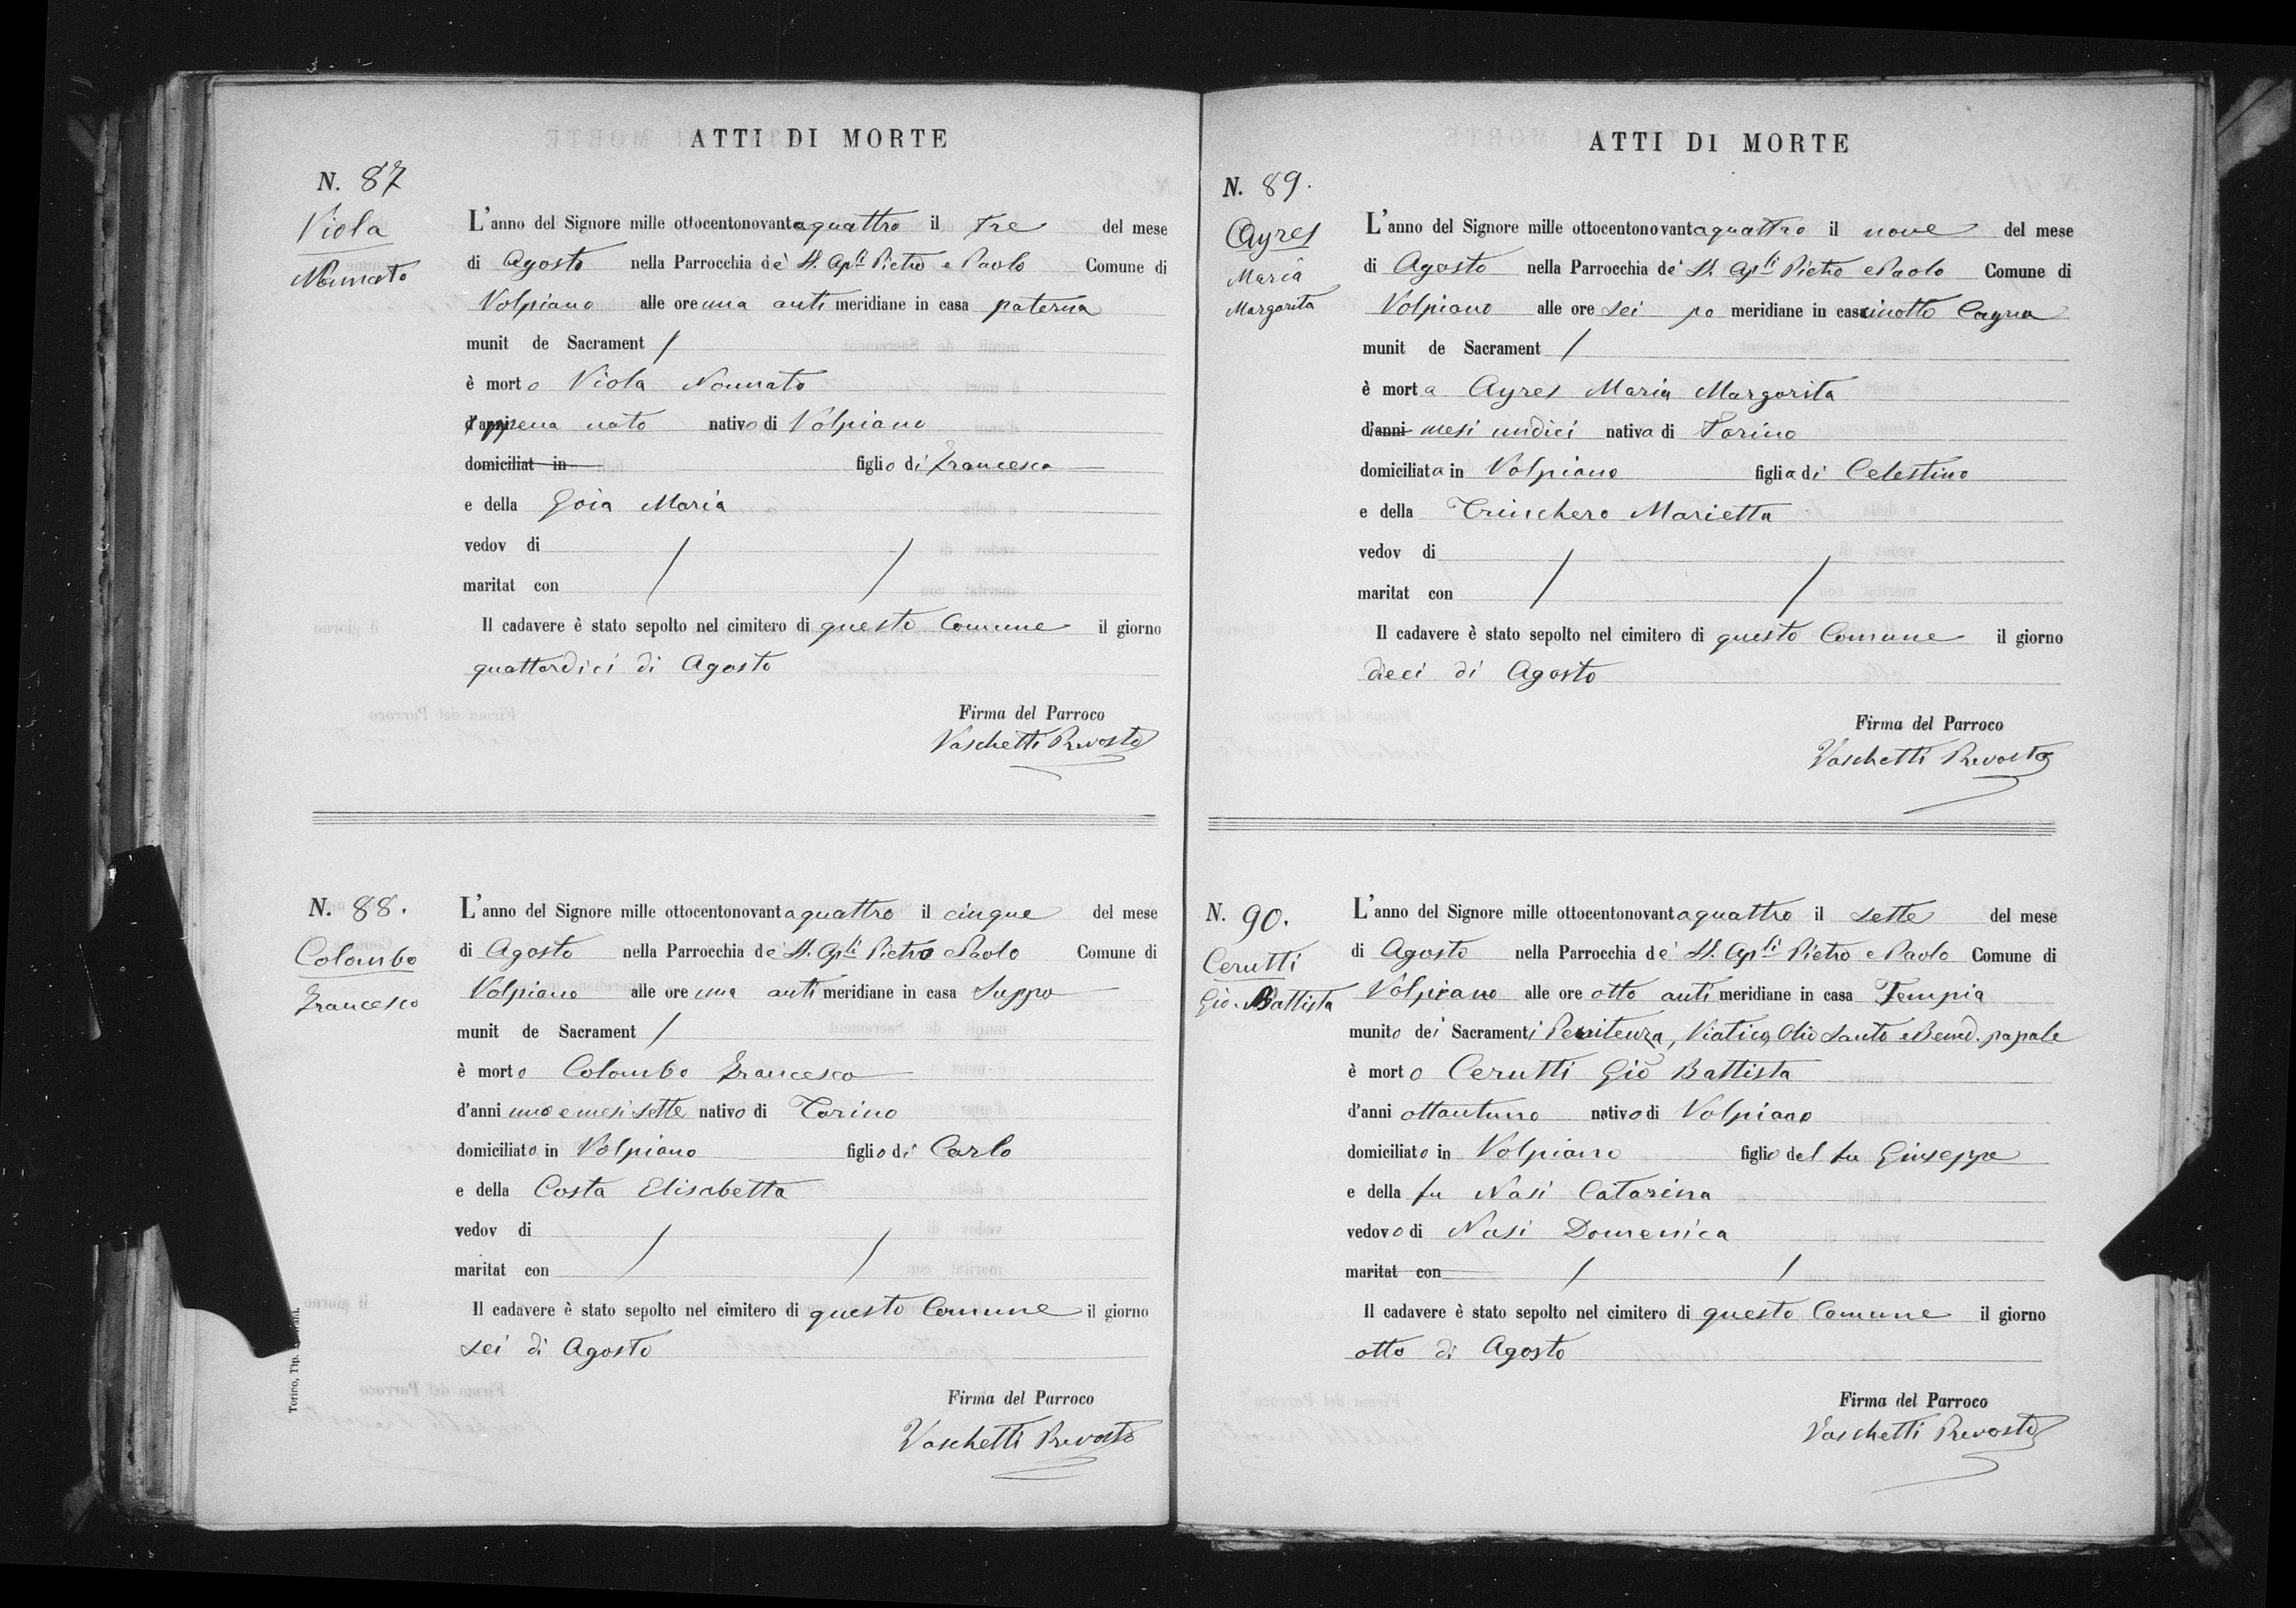 ATTI DI MORTE
N. 87
Viola
Nonnato
L'anno del Signore mille ottocentonovantaquattro il tre del mese
di Agosto nella Parrocchia de' SS. Apli Pietro e Paolo Comune di
Volpiano alle ore una anti meridiane in casa paterna
munit de Sacrament /
è morto Viola Nonnato
appena nato nativo di Volpiano
domiciliat in figlio di Francesco
e della Goia Maria
vedov di / /
maritat con / /
Il cadavere è stato sepolto nel cimitero di questo Comune il giorno
quattordici di Agosto
Firma del Parroco
Vaschetti Prevosto
N. 88.
Colombo
Francesco
L'anno del Signore mille ottocentonovantaquattro il cinque del mese
di Agosto nella Parrocchia de' SS. Apli Pietro e Paolo Comune di
Volpiano alle ore una anti meridiane in casa Suppo
munit de Sacrament /
è morto Colombo Francesco
d'anni uno e mesi sette nativo di Torino
domiciliato in Volpiano figlio di Carlo
e della Costa Elisabetta
vedov di / /
maritat con / /
Il cadavere è stato sepolto nel cimitero di questo Comune il giorno
sei di Agosto
Firma del Parroco
Vaschetti Prevosto
Torino, Tip.
ATTI DI MORTE
N. 89.
Ayres
Maria
Margarita
L'anno del Signore mille ottocentonovantaquattro il nove del mese
di Agosto nella Parrocchia de' SS. Apli Pietro e Paolo Comune di
Volpiano alle ore sei po meridiane in cascinotto Cagna
munit de Sacrament /
è morta Ayres Maria Margarita
d'anni mesi undici nativa di Torino
domiciliata in Volpiano figlia di Celestino
e della Trinchero Marietta
vedov di / /
maritat con / /
Il cadavere è stato sepolto nel cimitero di questo Comune il giorno
dieci di Agosto
Firma del Parroco
Vaschetti Prevosto
N. 90.
Cerutti
Gio. Battista
L'anno del Signore mille ottocentonovantaquattro il sette del mese
di Agosto nella Parrocchia de' SS. Apli Pietro e Paolo Comune di
Volpiano alle ore otto anti meridiane in casa Tempia
munito dei Sacramenti Penitenza, Viatico, Olio Santo e Bened. papale
è morto Cerutti Gio Battista
d'anni ottantuno nativo di Volpiano
domiciliato in Volpiano figlio del fu Giuseppe
e della fu Nasi Catarina
vedovo di Nasi Domenica
maritat con / /
Il cadavere è stato sepolto nel cimitero di questo Comune il giorno
otto di Agosto
Firma del Parroco
Vaschetti Prevosto